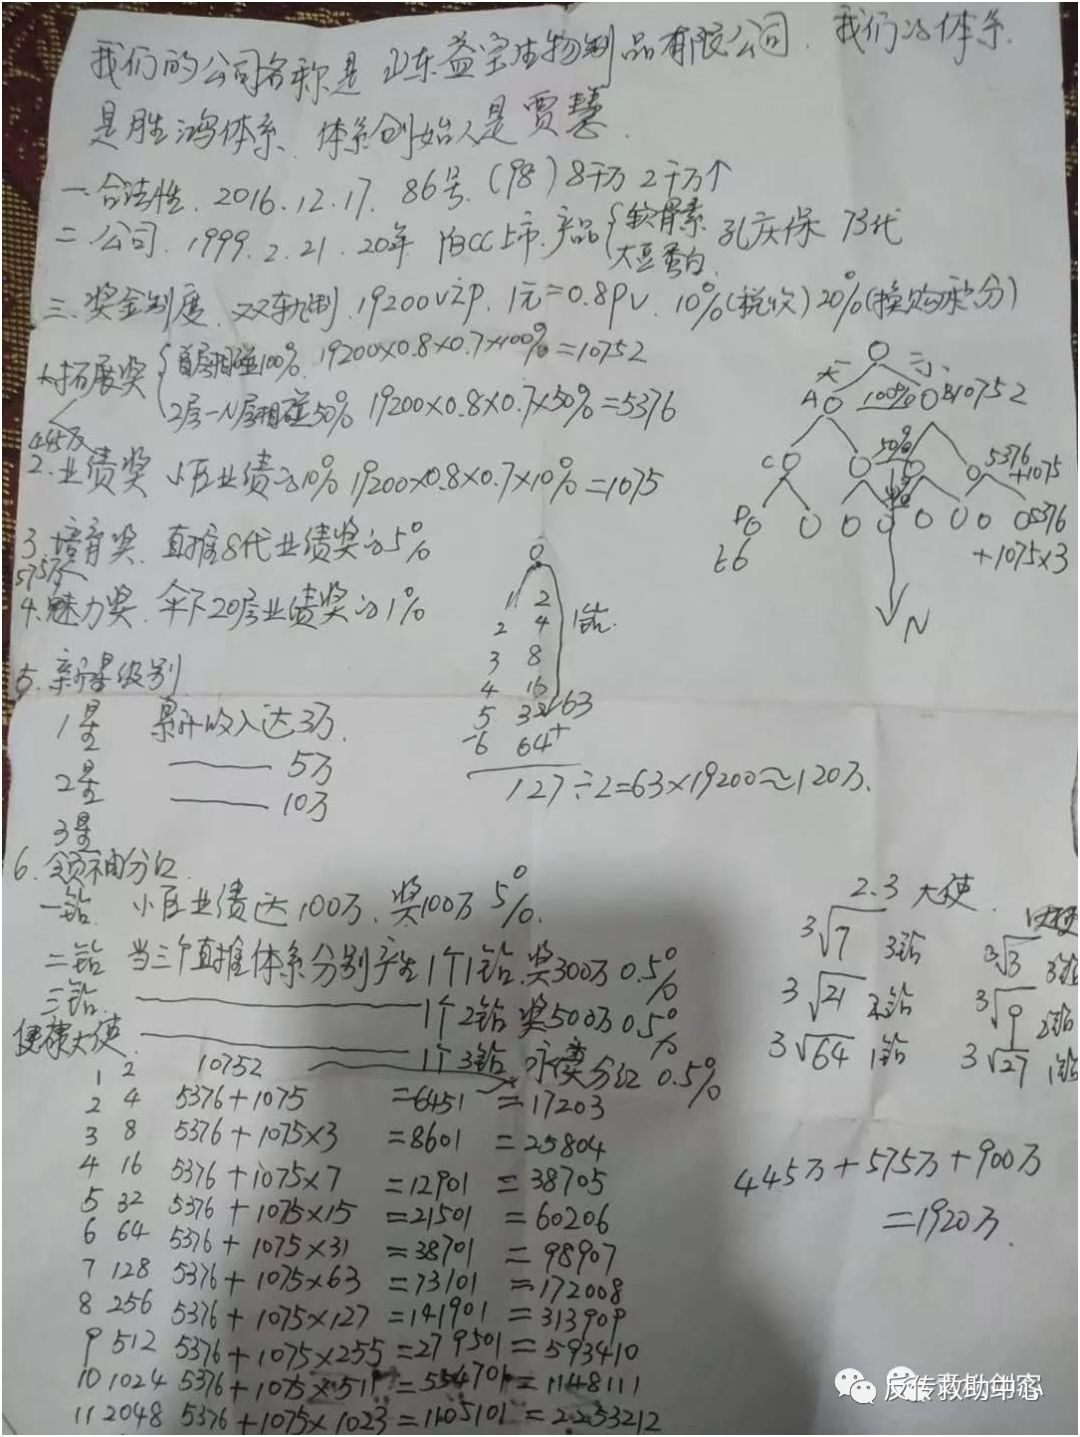 我们的公司名称是 山东益宝生物制品有限公司. 我们的体系.
是胜鸿体系. 体系创始人是贾慧.
一.合法性. 2016.12.17. 86号.(98)8千万 2千万个
二.公司. 1999.2.21. 20年. 陌CC上市.产品{软骨素 大豆蛋白. 孔庆保 73代
三.奖金制度. 双轨制. 19200元P. 1元=0.8PV. 10%(税收)20%(换购积分)
1.拓展奖{首层相碰100%. 19200×0.8×0.7×100%=10752
2层—N层相碰50% 19200×0.8×0.7×50%=5376
445万
2.业绩奖 小区业绩的10% 19200×0.8×0.7×10%=1075
3.培育奖. 直推8代业绩奖的5%
575万
4.魅力奖. 伞下20层业绩奖的1%
5.新星级别.
1星 累计收入达3万.
2星 —— 5万
3星 —— 10万
大 小
A 100% B 10752
C 50% 5376
+1075
D 5376
E6 +1075×3
N
1 2
2 4 1钻.
3 8
4 16
5 32 63
6 64+
127÷2=63×19200≈120万.
6.领袖分红.
一钻. 小区业绩达100万.奖100万 5%.
二钻 当三个直推体系分别产生1个1钻.奖300万 0.5%
三钻. —— 1个2钻 奖500万 0.5%
便捷大使. —— 1个3钻. 永续分红 0.5%
2.3 大使.
3√7 3钻
3√21 2钻
3√64 1钻
3√3
3√9 2钻
3√27 1钻
1 2 10752
2 4 5376+1075 =6451 =17203
3 8 5376+1075×3 =8601 =25804
4 16 5376+1075×7 =12901 =38705
5 32 5376+1075×15 =21501 =60206
6 64 5376+1075×31 =38701 =98907
7 128 5376+1075×63 =73101 =172008
8 256 5376+1075×127 =141901 =313909
9 512 5376+1075×255 =279501=593410
10 1024 5376+1075×511 =554701=1148111
11 2048 5376+1075×1023=1105101=2253212
445万+575万+900万
=1920万.
反传救助创客